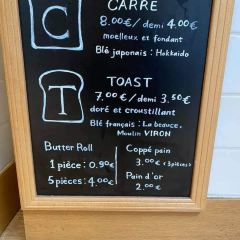 C
CARRÉ
8.00€/demi 4.00€
moelleux et fondant
Blé japonais : Hokkaido
T
TOAST
7.00€/demi 3.50€
doré et croustillant
Blé français : La beauce,
Moulin VIRON
Butter Roll
1 pièce : 0.90€
5 pièces : 4.00€
Coppé pain
3.00€ (3 pièces)
Pain d'or
2.00€